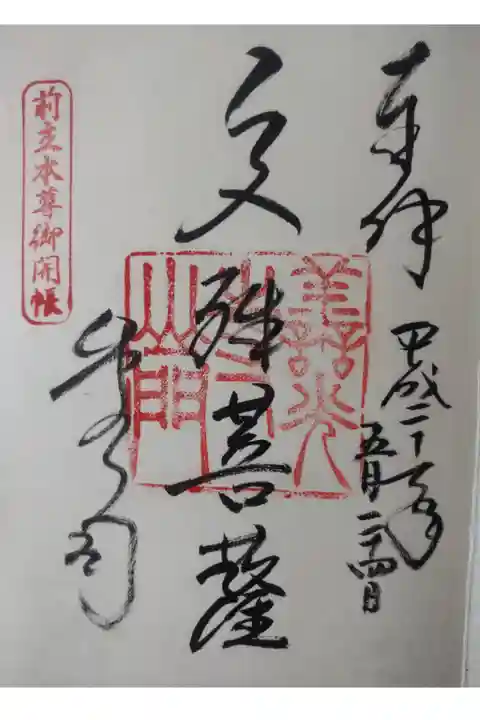 奉拝
平成二十一年
五月二十四日
文殊菩薩
善光寺山門
前立本尊御開帳